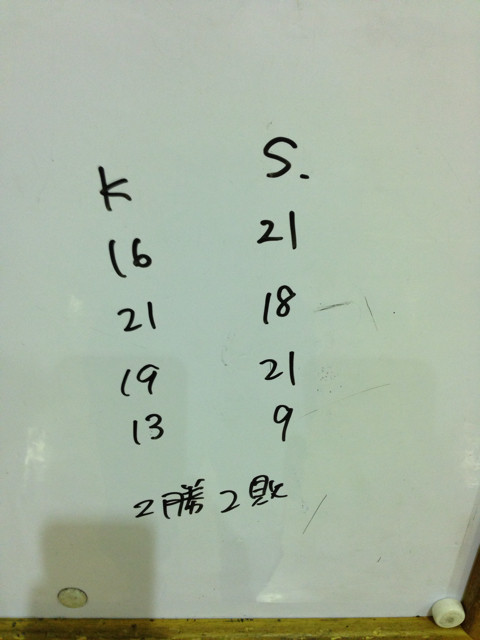 K S.
16 21
21 18
19 21
13 9
2勝2敗